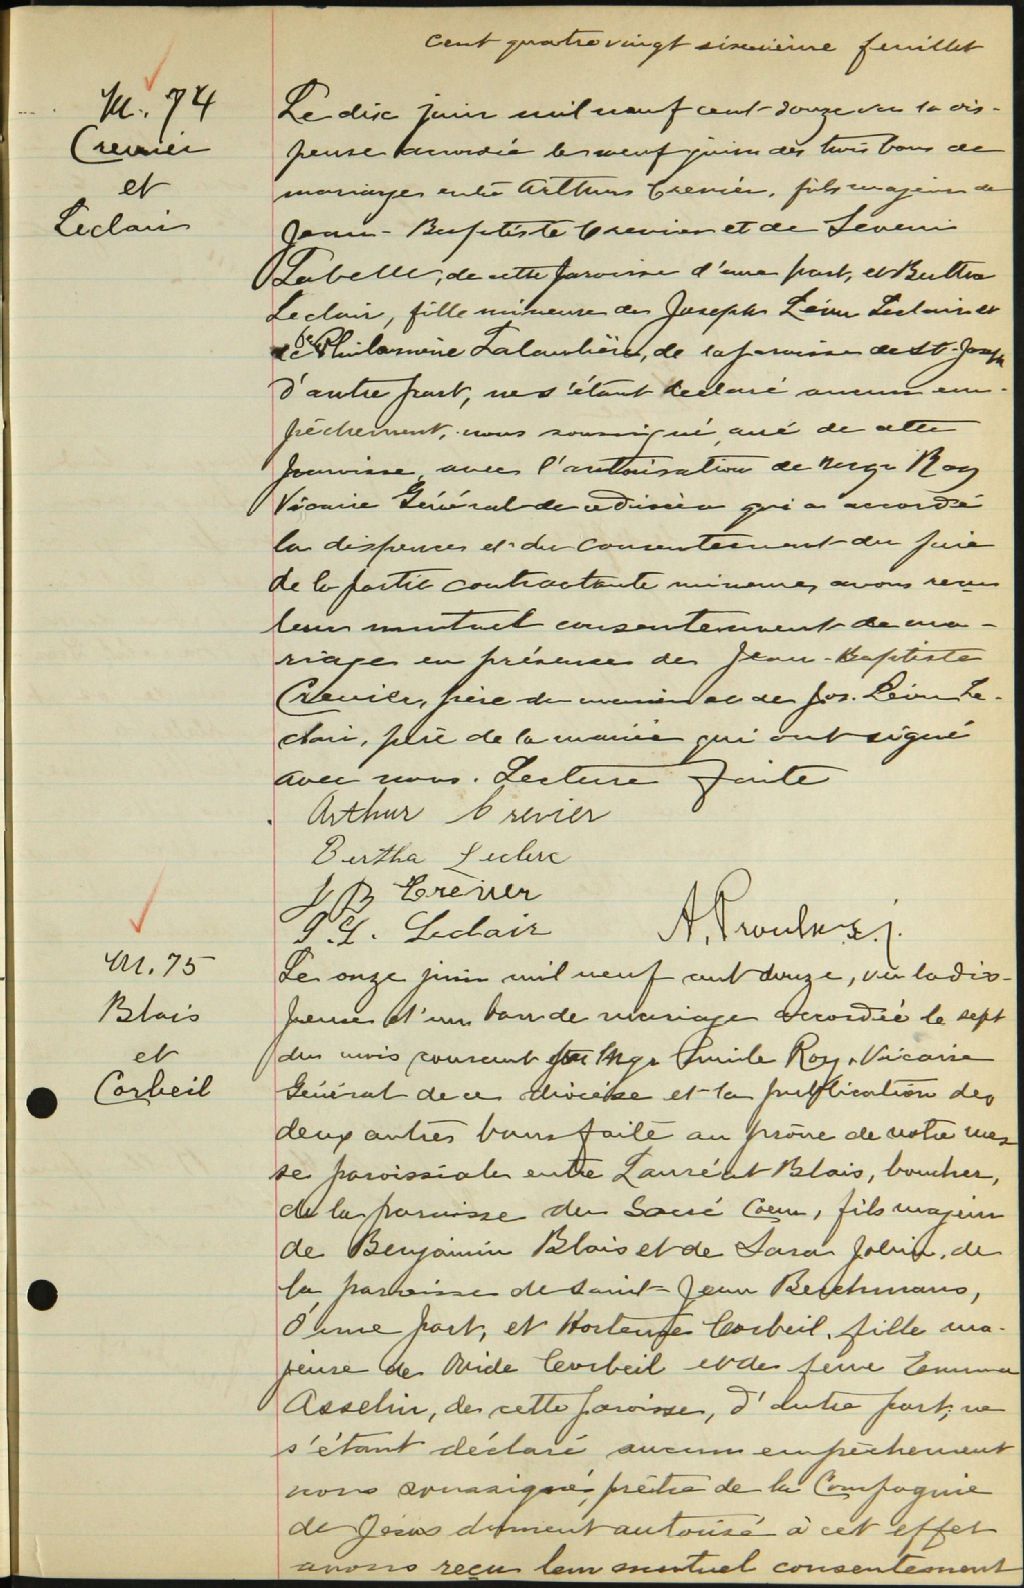 cent quatre vingt sixième feuillet
M. 74
Crevier
et
Leclair
Le dix juin mil neuf cent douze vu la dis-
pense accordée le neuf juin des trois bans de
mariage entre Arthur Crevier, fils majeur de
Jean-Baptiste Crevier et de
Labelle, de cette paroisse d'une part, et Bertha
Leclair, fille mineure de Joseph Léon Leclair et
de Philomène de la paroisse de St-Joseph
d'autre part, ne s'étant déclaré aucun em-
pêchement, nous soussigné, curé de cette
paroisse, avec l'autorisation de Mgr Roy
Vicaire Général de ce diocèse qui a accordé
la dispense et du consentement du père
de la partie contractante mineure, avons reçu
leur mutuel consentement de ma-
riage en présence de Jean-Baptiste
Crevier, père du marié et de Jos. Léon Le-
clair, père de la mariée qui ont signé
avec nous. Lecture faite
Arthur Crevier
Bertha Leclerc
J B Crevier
J. L. Leclair
A. Proulx s.j.
M. 75
Blais
et
Corbeil
Le onze juin mil neuf cent douze, vu la dis-
pense d'un ban de mariage accordée le sept
du mois courant par Mgr Emile Roy, Vicaire
Général de ce diocèse et la publication des
deux autres bans faite au prône de notre mes
se paroissiale entre Lauréat Blais, boucher,
de la paroisse du Sacré Coeur, fils majeur
de Benjamin Blais et de Sara Jobin, de
la paroisse de Saint-Jean Berchmans,
d'une part, et Hortense Corbeil, fille ma-
jeure de Ovide Corbeil et de feue Emma
Asselin, de cette paroisse, d'autre part, ne
s'étant déclaré aucun empêchement
nous soussigné, prêtre de la Compagnie
de Jésus dument autorisé à cet effet
avons reçu leur mutuel consentement